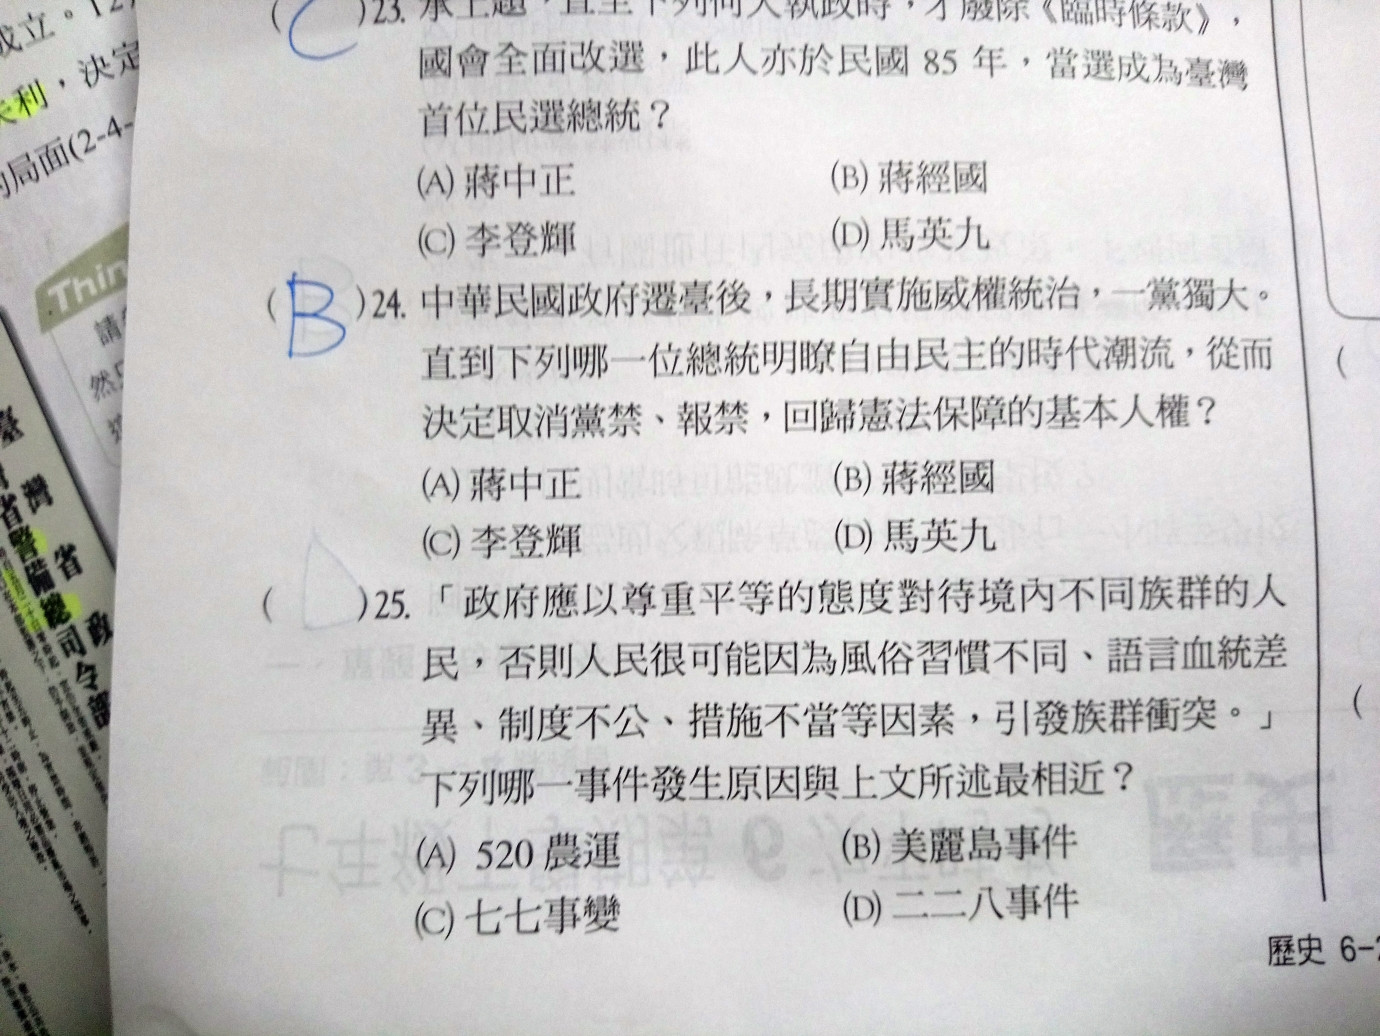 成立。
利，決定
的局面(2-4-
Thin
請
然
臺灣省政
省警備總司令部
( C )23. 承上題，直至下列何人執政時，才廢除《臨時條款》，
國會全面改選，此人亦於民國 85 年，當選成為臺灣
首位民選總統？
(A) 蔣中正 (B) 蔣經國
(C) 李登輝 (D) 馬英九
( B )24. 中華民國政府遷臺後，長期實施威權統治，一黨獨大。
直到下列哪一位總統明瞭自由民主的時代潮流，從而
決定取消黨禁、報禁，回歸憲法保障的基本人權？
(A) 蔣中正 (B) 蔣經國
(C) 李登輝 (D) 馬英九
( D )25. 「政府應以尊重平等的態度對待境內不同族群的人
民，否則人民很可能因為風俗習慣不同、語言血統差
異、制度不公、措施不當等因素，引發族群衝突。」
下列哪一事件發生原因與上文所述最相近？
(A) 520 農運 (B) 美麗島事件
(C) 七七事變 (D) 二二八事件
歷史 6-